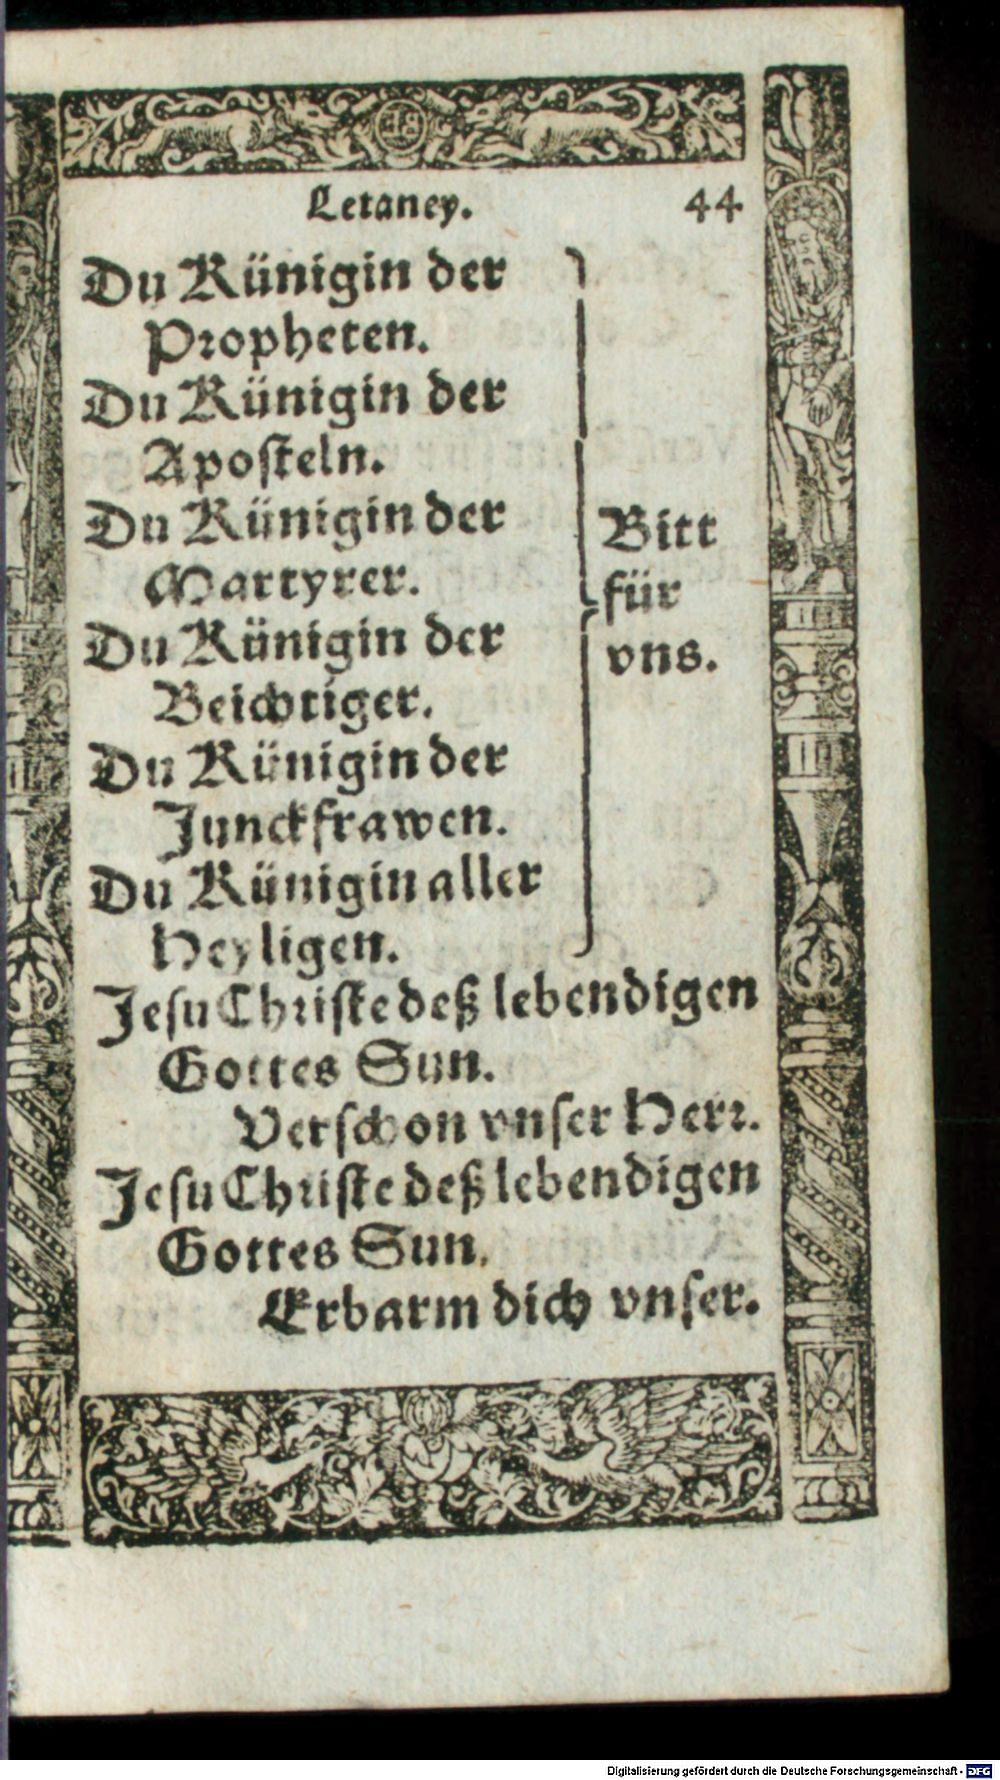 Letaney. 44
Du Künigin der
Propheten.
Du Künigin der
Aposteln.
Du Künigin der
Martyrer.
Du Künigin der
Beichtiger.
Du Künigin der
Junckfrawen.
Du Künigin aller
Heyligen.
Bitt
für
vns.
Jesu Christe deß lebendigen
Gottes Sun.
Verschon vnser Herr.
Jesu Christe deß lebendigen
Gottes Sun.
Erbarm dich vnser.
Digitalisierung gefördert durch die Deutsche Forschungsgemeinschaft - DFG